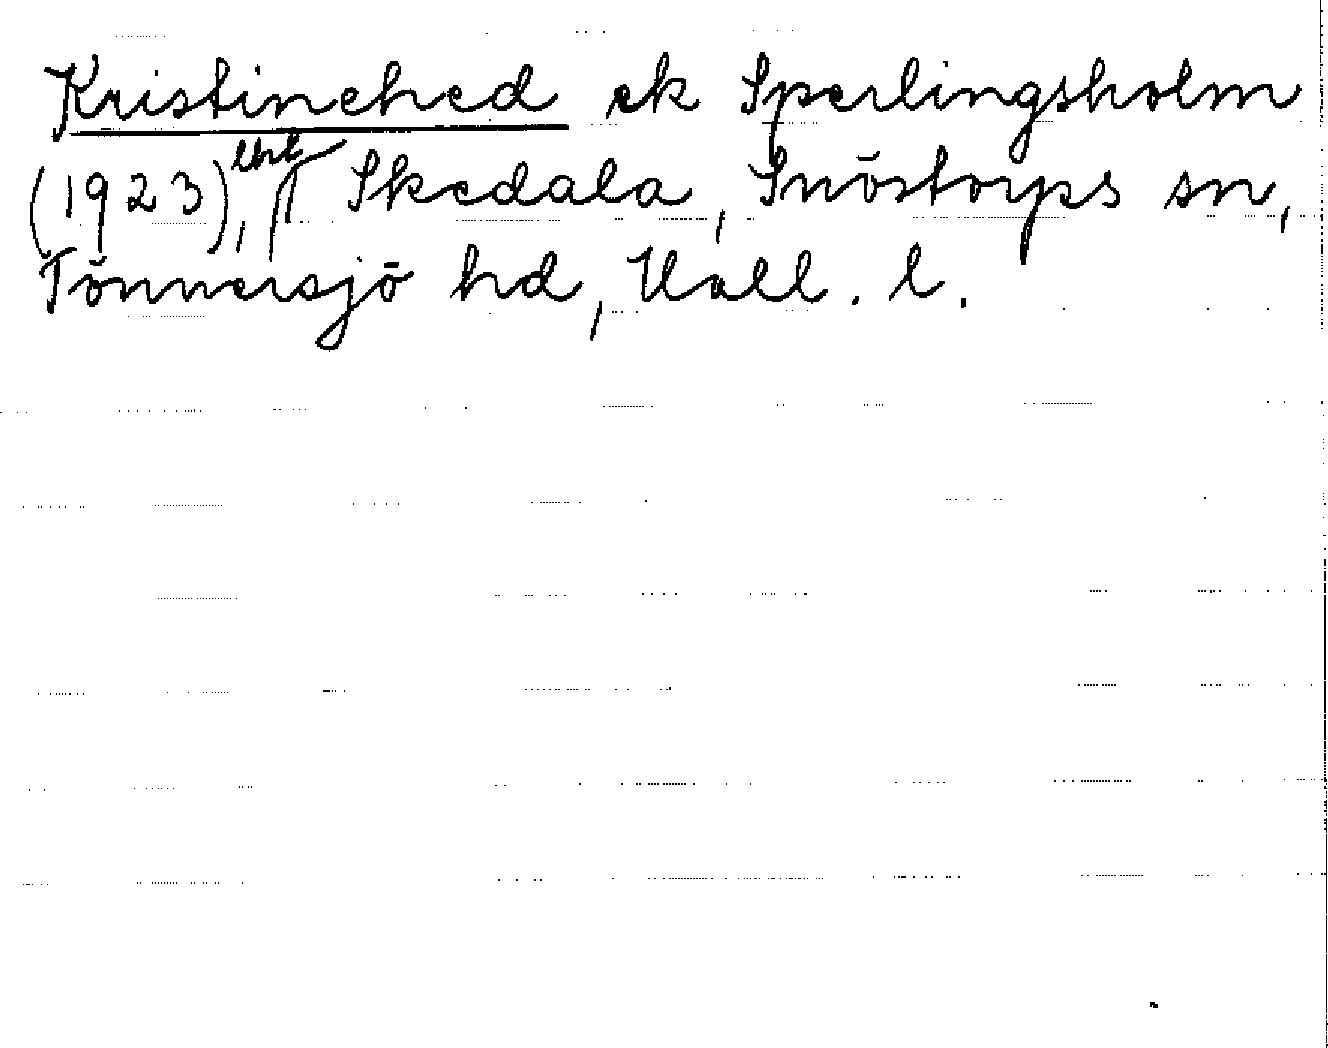 Kristinehed ek Sperlingsholm
(1923), lhl Skedala, Snöstorps sn,
Tönnersjö hd, Hall. l.